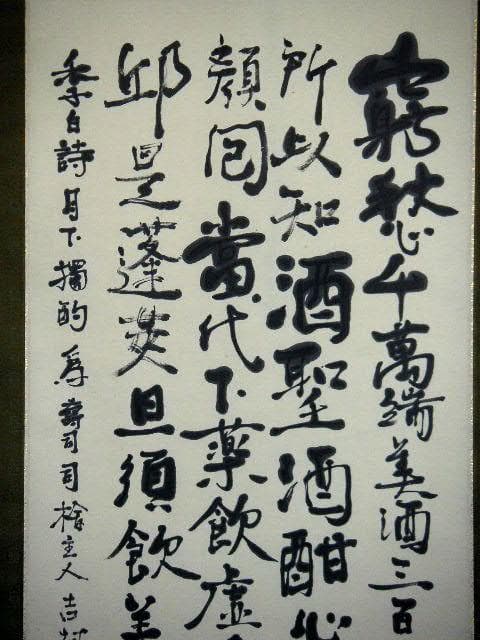 窮愁千萬端美酒三百
所以知酒聖酒酣心
顏回當代不藥飲虛
邱是蓬萊且須飲美
李白詩月下獨酌 為壽司司桧主人 吉